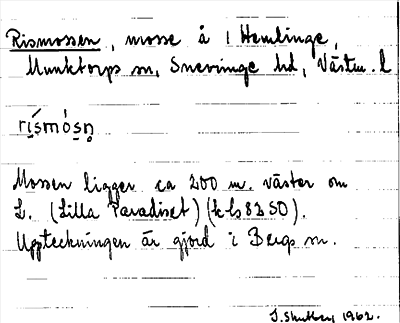 Rismossen, mosse å 1 Hemlinge,
Munktorps sn, Snevringe hd, Västm. l
rísmósn̥
Mossen ligger ca 200 m. väster om
L. (Lilla Paradiset) (kbl 82 SO).
Uppteckningen är gjord i Bergs sn.
1962.